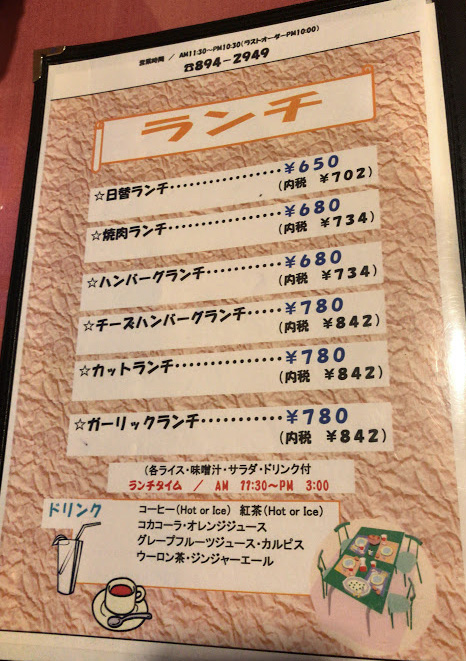 営業時間 / AM11:30~PM10:30(ラストオーダーPM10:00)
☎894-2949
ランチ
☆日替ランチ・・・・・・・・・・・・・・・・¥650
(内税 ¥702)
☆焼肉ランチ・・・・・・・・・・・・・・・・¥680
(内税 ¥734)
☆ハンバーグランチ・・・・・・・・・・¥680
(内税 ¥734)
☆チーズハンバーグランチ・・・・・¥780
(内税 ¥842)
☆カットランチ・・・・・・・・・・・・・・・¥780
(内税 ¥842)
☆ガーリックランチ・・・・・・・・・・・・¥780
(内税 ¥842)
(各ライス・味噌汁・サラダ・ドリンク付
ランチタイム / AM 11:30~PM 3:00
ドリンク
コーヒー(Hot or Ice) 紅茶(Hot or Ice)
コカコーラ・オレンジジュース
グレープフルーツジュース・カルピス
ウーロン茶・ジンジャーエール